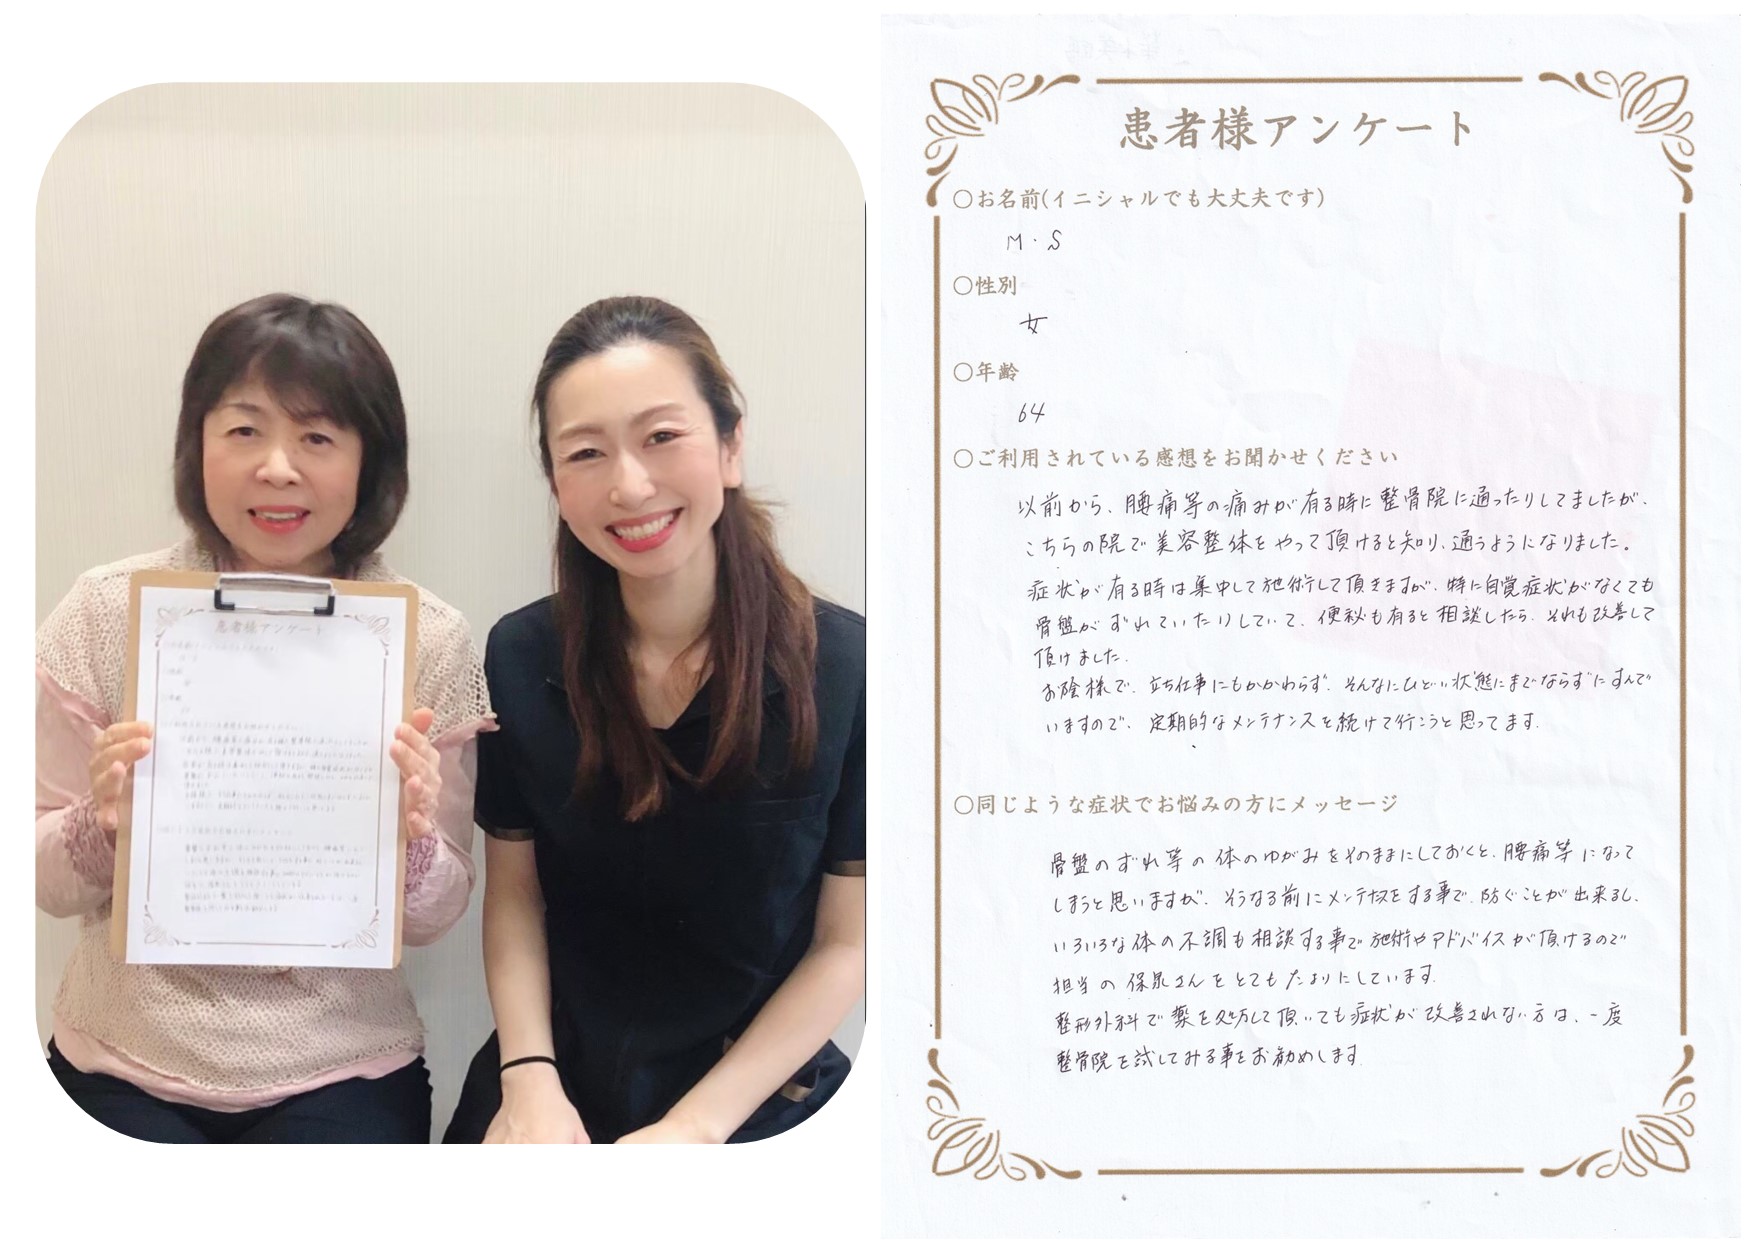 患者様アンケート
○お名前(イニシャルでも大丈夫です)
M・S
○性別
女
○年齢
64
○ご利用されている感想をお聞かせください
以前から、腰痛等の痛みが有る時に整骨院に通ったりしてましたが、
こちらの院で美容整体をやって頂けると知り、通うようになりました。
症状が有る時は集中して施術して頂きますが、特に自覚症状がなくても
骨盤がずれていたりしていて、便秘も有ると相談したら、それも改善して
頂けました。
お陰様で、立ち仕事にもかかわらず、そんなにひどい状態にまでならずにすんで
いますので、定期的なメンテナンスを続けて行こうと思ってます。
○同じような症状でお悩みの方にメッセージ
骨盤のずれ等の体のゆがみをそのままにしておくと、腰痛等になって
しまうと思いますが、そうなる前にメンテナスをする事で、防ぐことが出来るし、
いろいろな体の不調も相談する事で施術やアドバイスが頂けるので
担当の保泉さんをとてもたよりにしています。
整形外科で薬を処方して頂いても症状が改善されない方は、一度
整骨院を試してみる事をお勧めします。